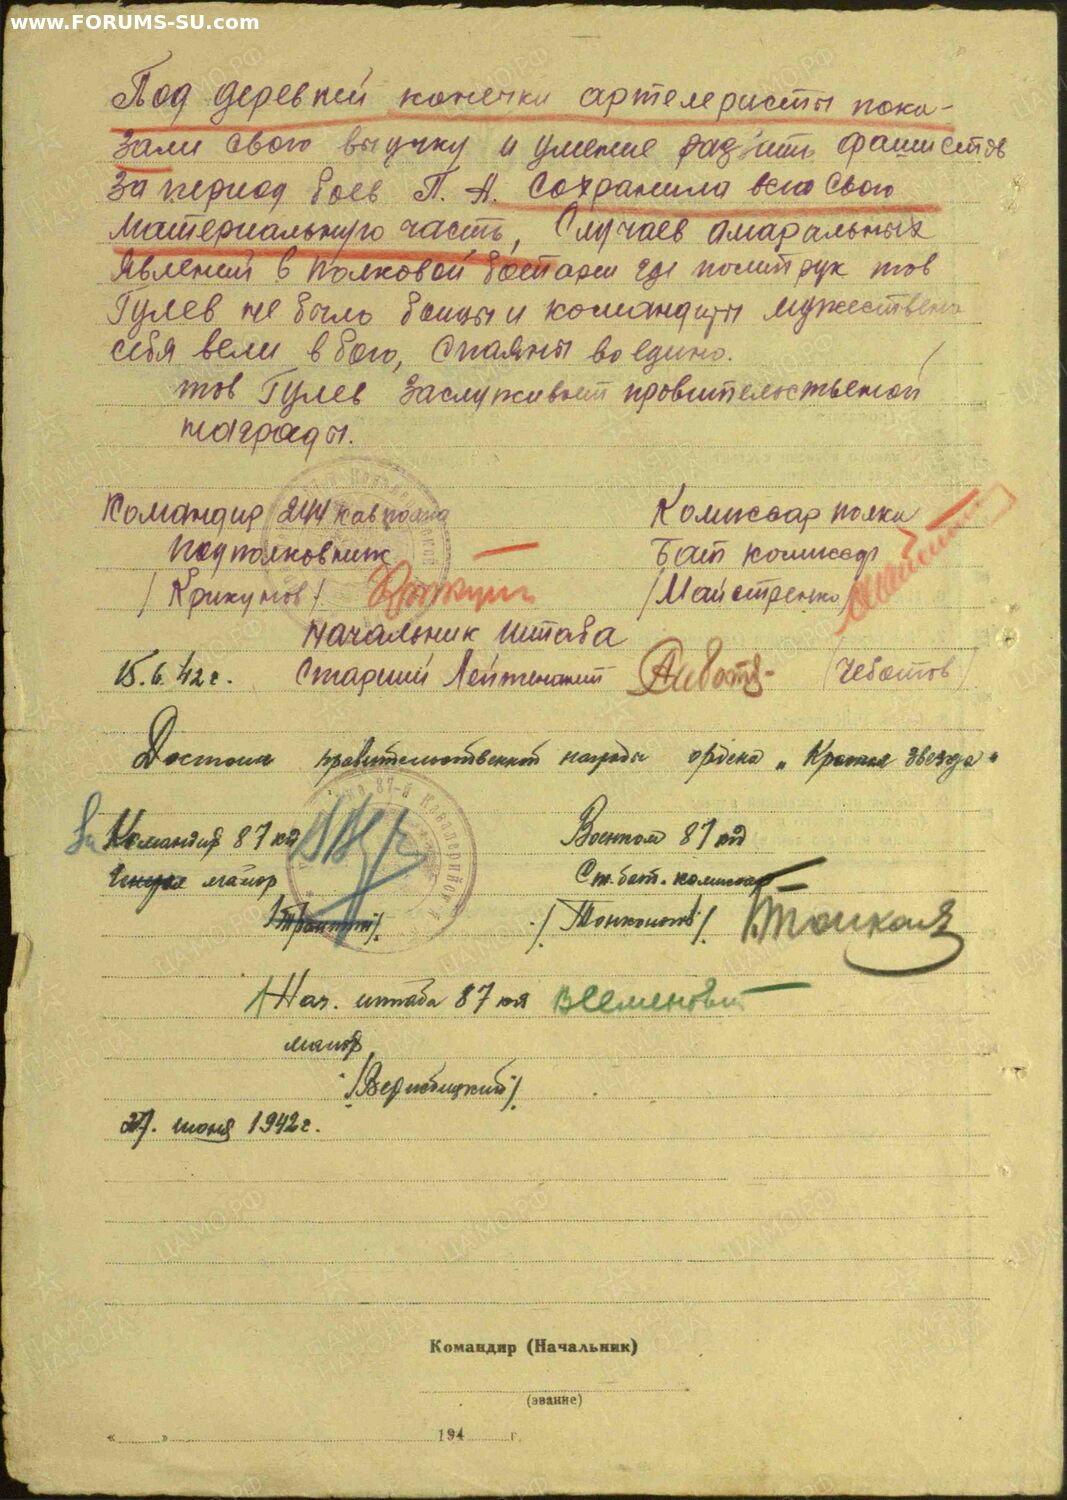 www.FORUMS-SU.com
Под деревней конечки артелеристы пока-
зали свою выучку и умение разить фашистов
За период боев П. А. сохранила всю свою
материальную часть, Случаев амаральных
явлений в полковой батареи где политрук тов
Гулев не было бойцы и командиры мужествено
себя вели в бою, спаяны воедино.
тов Гулев заслуживает правительственой
награды.
Командир 244 кавполка
Комиссар полка
подполковник
Бат комиссар
/Крикунов/
/Майстренко/
Начальник штаба
15.6.42 г. Старший Лейтенант
(Чеботов)
Достоин правительственной награды ордена „Красная звезда"
Командир 87 кд
Военком 87 кд
майор
Ст. бат. комиссар
/Трантин/
/Тонконогов/
Нач. штаба 87 кд
майор
/Вербицкий/
27. июня 1942 г.
Командир (Начальник)
(звание)
« » 194 г.